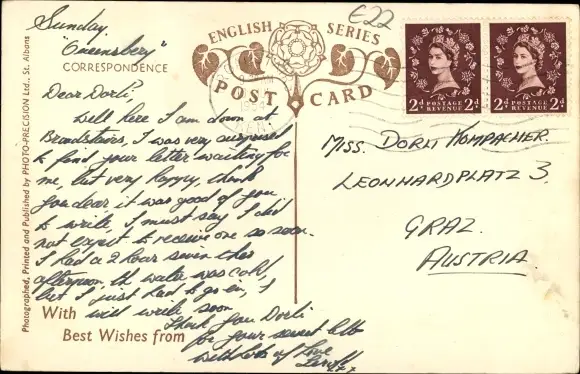 Sunday.
"Queensbery"
CORRESPONDENCE
Dear Dorli?
Well here I am down at
Broadstairs, I was very surprised
to find your letter waiting for
me, but very happy, thank
you dear it was good of you
to write, I must say I did
not expect to receive one so soon.
I had a 2 hour swim this
afternoon, the water was cold,
but I just had to go in, I
will write soon
Thank you Dorli
for your sweet
With lots of Love
With
Best Wishes from
ENGLISH SERIES
POST CARD
£22
2D POSTAGE REVENUE 2D
2D POSTAGE REVENUE 2D
MISS. DORLI KOMPACHER.
LEONHARDPLATZ 3.
GRAZ.
AUSTRIA.
Photographed, Printed and Published by PHOTO-PRECISION Ltd., St. Albans